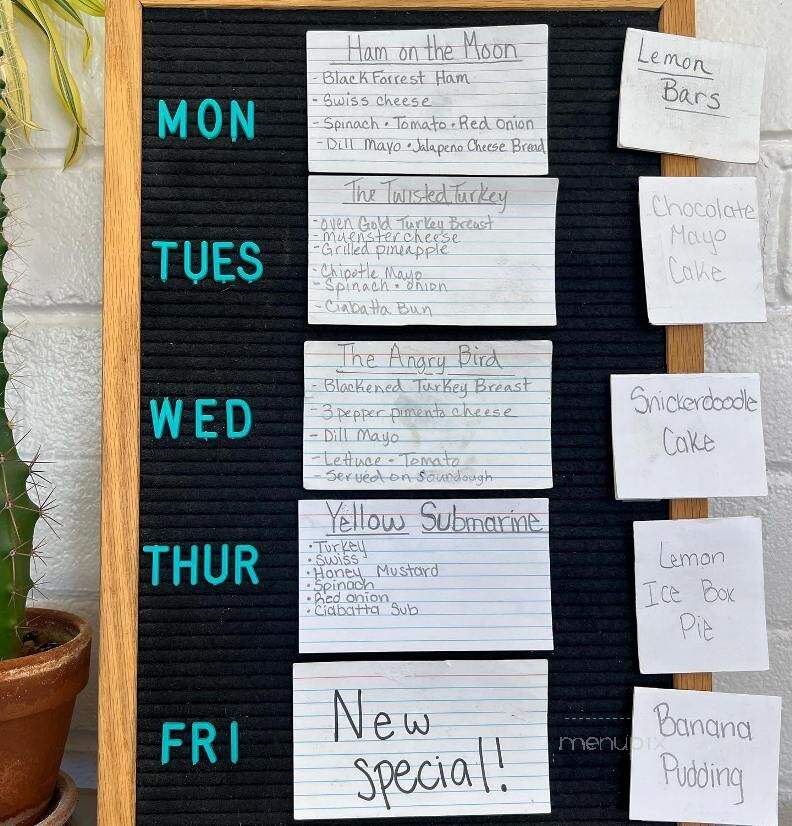 MON
Ham on the Moon
- Black Forrest Ham
- Swiss cheese
- Spinach • Tomato • Red Onion
- Dill Mayo • Jalapeno Cheese Bread
Lemon
Bars
TUES
The Twisted Turkey
- oven Gold Turkey Breast
- muenster cheese
- Grilled pineapple
- Chipotle Mayo
- Spinach • onion
- Ciabatta Bun
Chocolate
Mayo
Cake
WED
The Angry Bird
- Blackened Turkey Breast
- 3 pepper pimento cheese
- Dill Mayo
- Lettuce - Tomato
- Served on Sourdough
Snickerdoodle
Cake
THUR
Yellow Submarine
• Turkey
• Swiss
• Honey Mustard
• Spinach
• Red onion
• Ciabatta Sub
Lemon
Ice Box
Pie
FRI
New
special!
Banana
Pudding
menupix